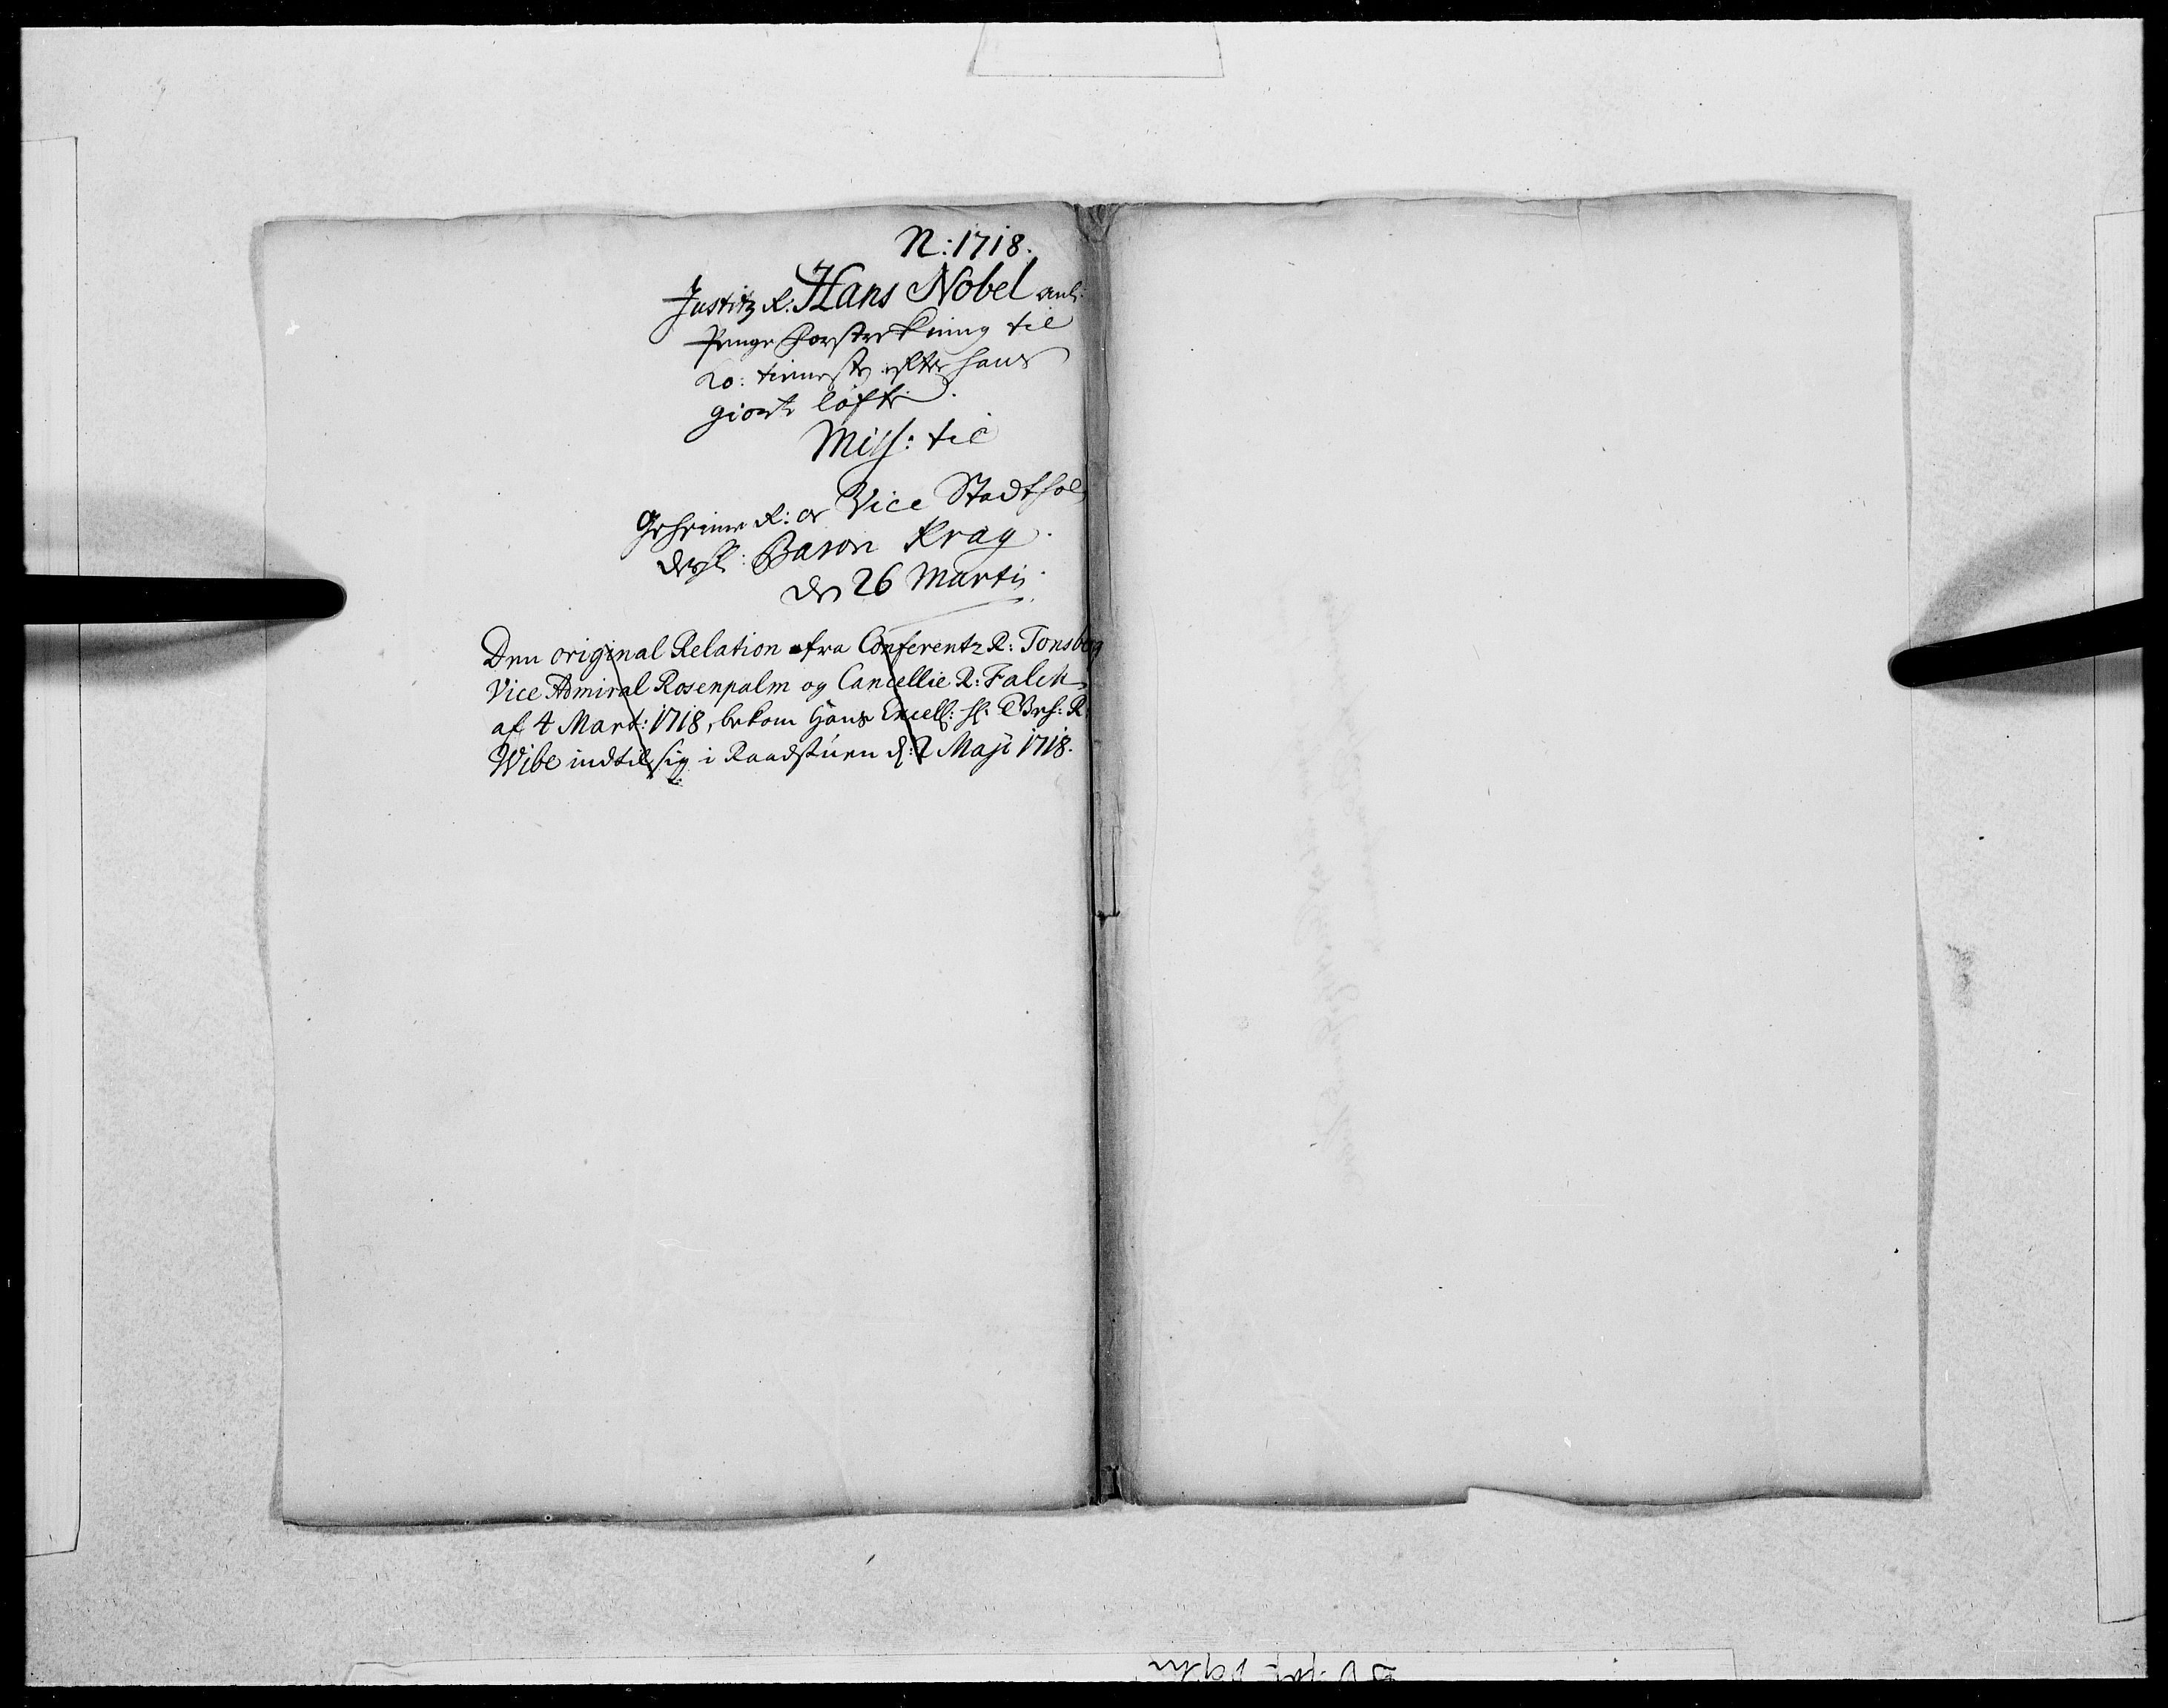 N: 1718.
Justitz R: Hans Nobel anl:
Penge Forstrekning til
Ko: tieneste efter hans
giorte löfte.
Miss: til
Geheime R: og Vice Stadthol
Baron Krag.
den 26 Martij.
Den original Relation fra Conferentz R: Tonsberg
Vice Admiral Rosenpalm og Cancellie R: Falck
af 4 Mart: 1718, bekom Hans Excell: Hr: Geh: R:
Wibe indtil sig i Raadstuen d: 2 Maji 1718.